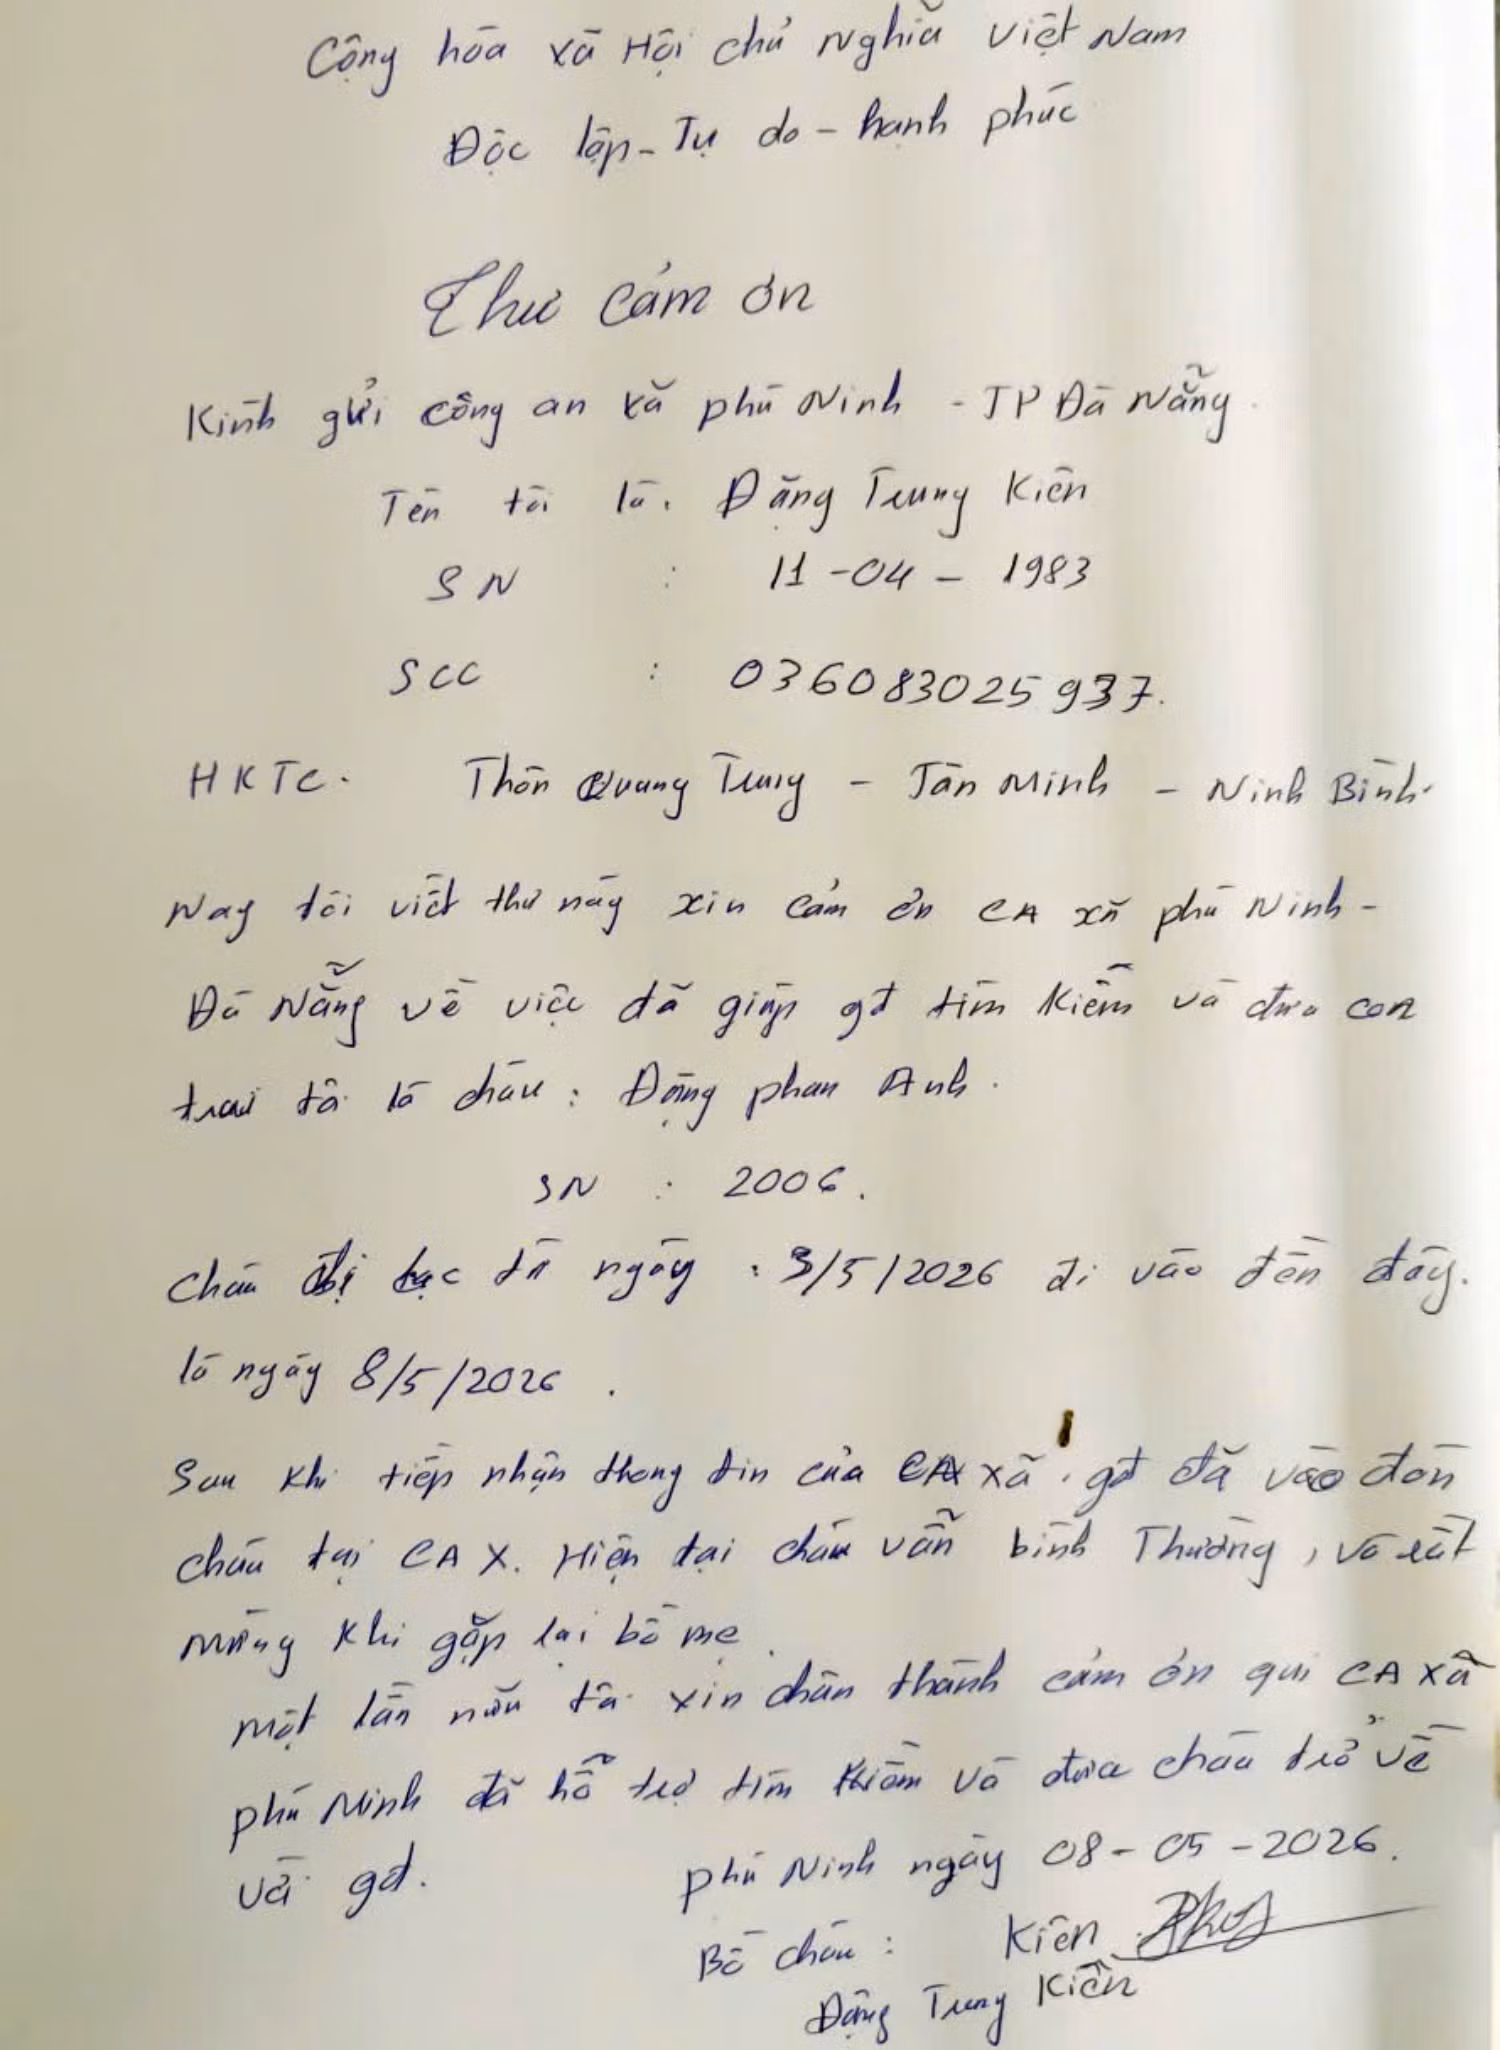 Cộng hòa xã Hội chủ Nghĩa Việt Nam
Độc lập - Tự do - hạnh phúc
Thư cảm ơn
Kính gửi công an xã phú Ninh - TP Đà Nẵng.
Tên tôi là: Đặng Trung Kiên
SN : 11 - 04 - 1983
SCC : 036083025937.
HKTC. Thôn Quang Trung - Tân Minh - Ninh Bình.
Nay tôi viết thư này xin cảm ơn CA xã phú Ninh -
Đà Nẵng về việc đã giúp gđ tìm kiếm và đưa con
trai tôi là cháu : Đặng phan Anh.
SN : 2006.
cháu bị lạc từ ngày : 3/5/2026 đi vào đến đây.
là ngày 8/5/2026 .
Sau khi tiếp nhận thong tin của CA xã . gđ đã vào đón
cháu tại CA X. Hiện tại cháu vẫn bình Thường, và rất
mừng khi gặp lại bố mẹ.
một lần nữa tôi xin chân thành cảm ơn quí CA xã
phú Ninh đã hỗ trợ tìm kiếm và đưa cháu trở về
với gđ.
phú Ninh ngày 08 - 05 - 2026.
Bố cháu : Kiên
Đặng Trung Kiên